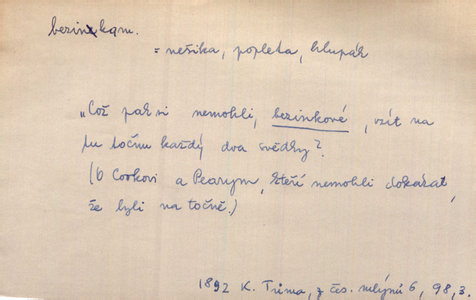 bezinek, a m.
= nešika, popleta, hlupák
„Což pak si nemohli, bezinkové, vzít na
tu točnu každý dva svědky?
(O Cookovi a Pearym, kteří nemohli dokázat,
že byli na točně.)
1892 K. Tůma, z čes. mlýnů 6, 98, 3.